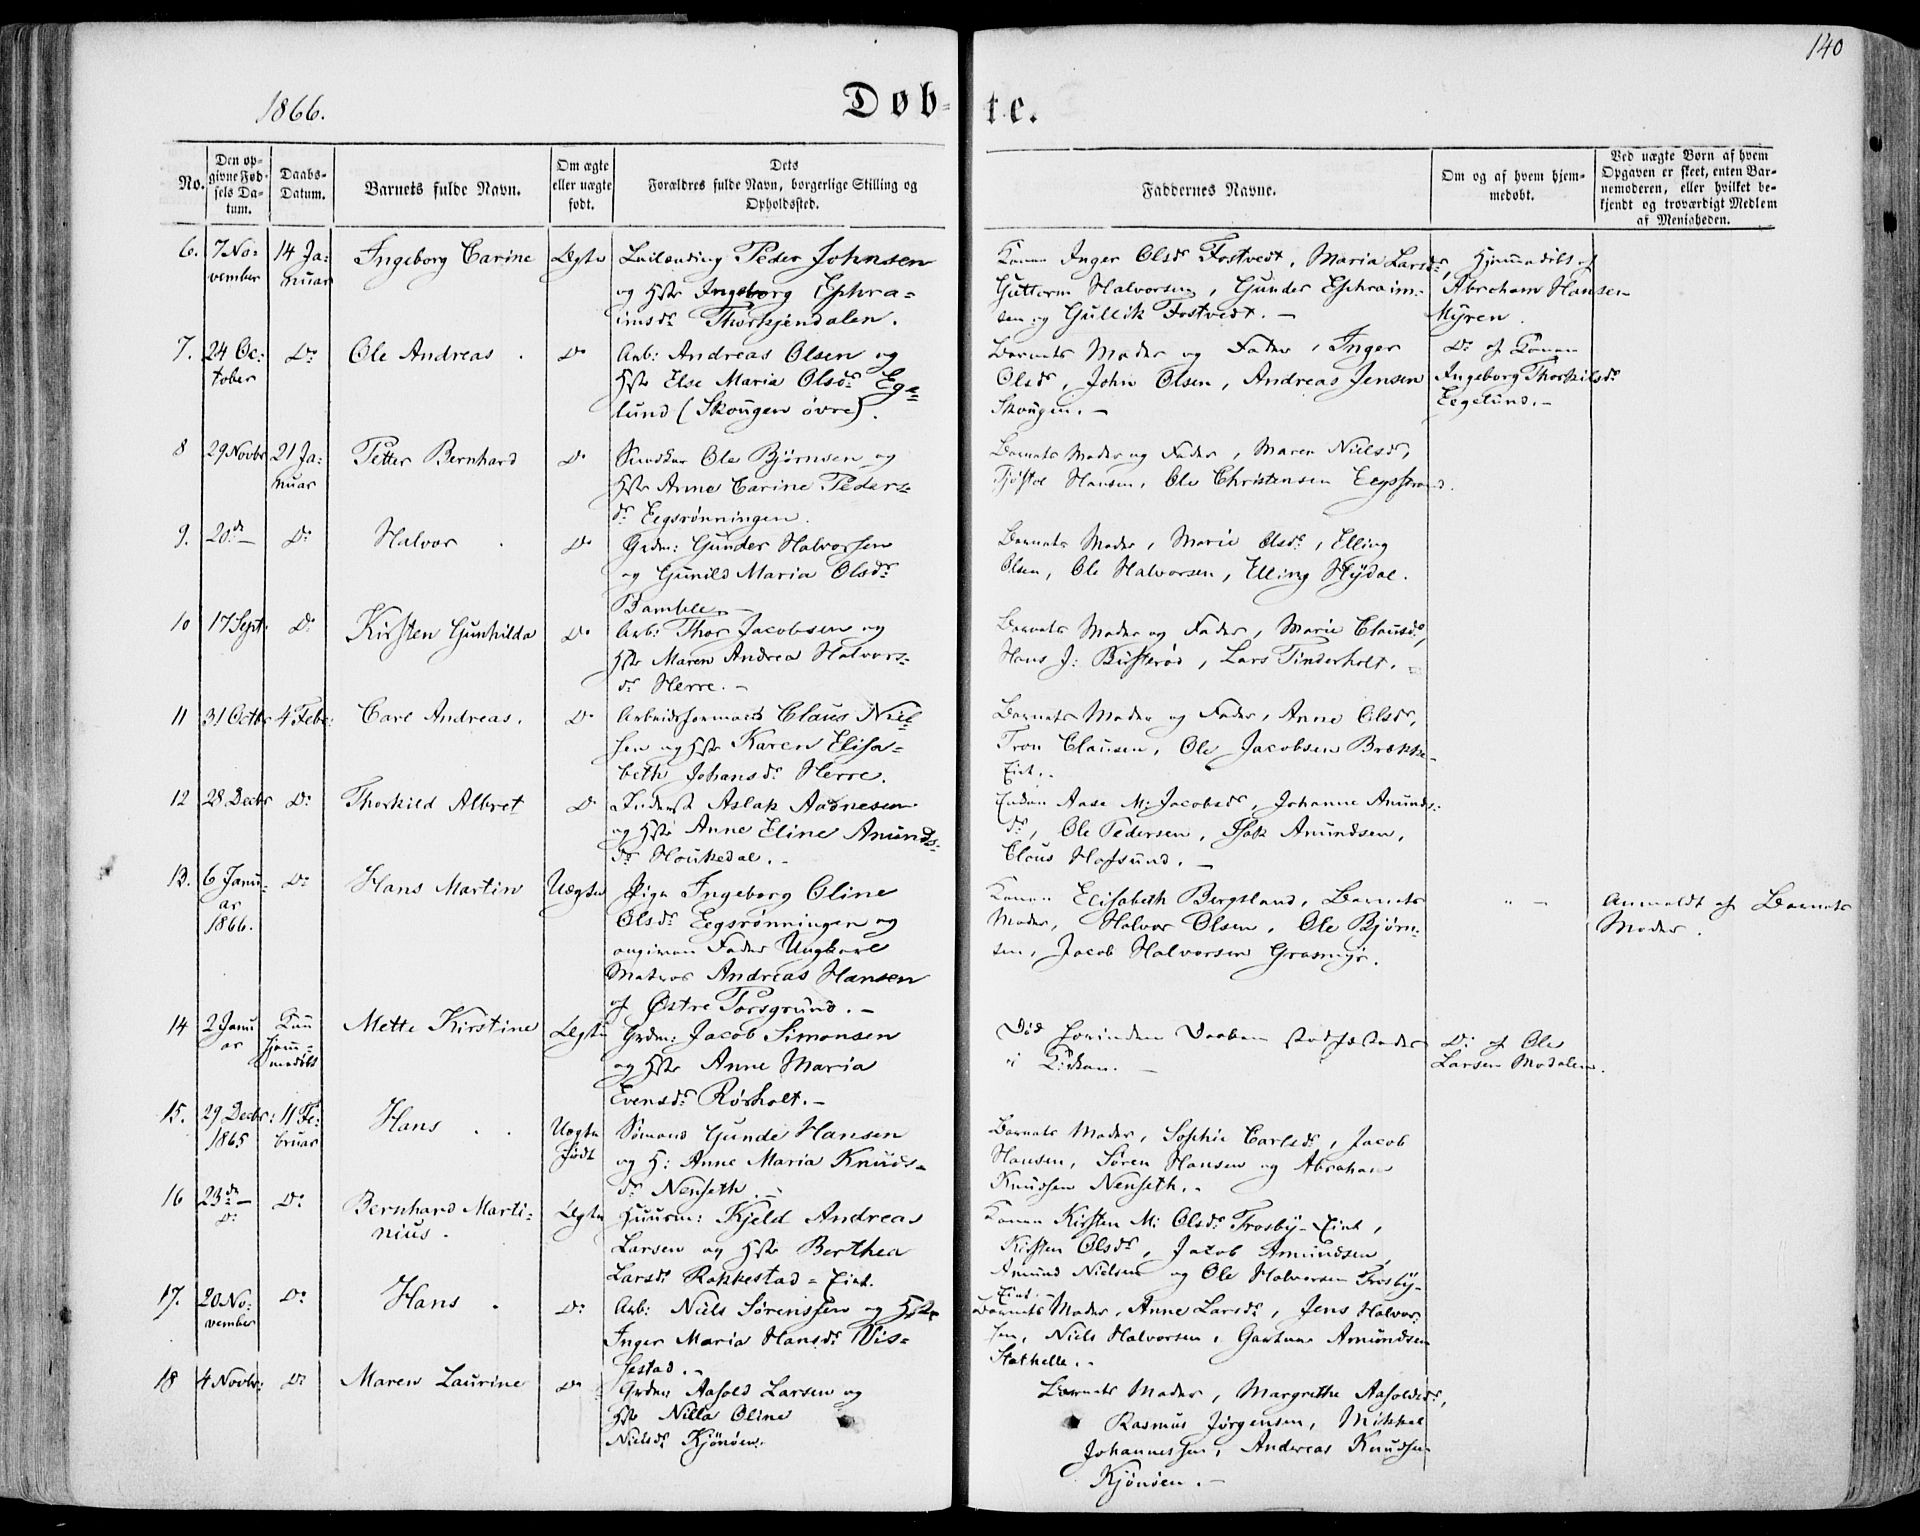 140
1866.
Døb- te.
No.
Den op-
givne Fød-
sels Da-
tum.
Daabs-
Datum.
Barnets fulde Navn.
Om ægte
eller uægte
født.
Dets
Forældres fulde Navn, borgerlige Stilling og
Opholdssted.
Faddernes Navne.
Om og af hvem hjem-
medøbt.
Ved uægte Børn af hvem
Opgaven er skeet, enten Bar-
nemoderen, eller hvilket be-
kjendt og troværdigt Medlem
af Menigheden.
6. 7 No- 14 Ja- Ingeborg Carine Ægte Leilending Peder Johnsen
vember nuar og Hst. Ingeborg Ephra-
imsdr Thorkjendalen.
Konen Inger Olsdr Tostvedt, Maria Larsdr, Hjemmedøbt af
Guttorm Halvorsen, Gunder Ephraim- Abraham Hansen
sen og Gullik Tostvedt. – Myren.
7. 24 Oc- Do Ole Andreas. Do Arb: Andreas Olsen og
tober Hst. Else Maria Olsdr Ege-
lund (Skougen øvre).
Barnets Moder og Fader, Inger Do af Konen
Olsdr, John Olsen, Andreas Jensen Ingeborg Thorkilsdr
Skougen. – Egelund. –
8 29 Novbr 21 Ja- Petter Bernhard Do Ole Bjørnsen og
nuar Hst. Anne Carine Peders-
dr Eegsrønningen.
Barnets Moder og Fader, Maren Nielsdr,
Tjøstol Hansen, Ole Christensen Eegsstrand.
9. 20de – Do Halvor. Do Grdm: Gunder Halvorsen
og Gunild Maria Olsdr
Bamble. –
Barnets Moder, Marie Olsdr, Elling
Olsen, Ole Halvorsen, Elling Hydal.
10 17 Sept: Do Kirsten Gunhilda Do Arb: Thor Jacobsen og
Hst. Maren Andrea Halvors-
dr Herre. –
Barnets Moder og Fader, Marie Clausdr,
Hans J: Busterød, Lars Tinderholt. –
11 31 Octbr 4 Febr: Carl Andreas. Do Arbeidsformand Claus Niel-
sen og Hst. Karen Elisa-
beth Johansdr Herre.
Barnets Moder og Fader, Anne Olsdr,
Tron Clausen, Ole Jacobsen Brække-
Eiet. –
12 28 Decbr Do Thorkild Albret Do Inderst Aslak Aadnesen
og Hst. Anne Eline Amunds-
dr Houkedal. –
Enken Aase M: Jacobsdr, Johanne Amunds-
dr, Ole Pedersen, Isak Amundsen,
Claus Hafsund. –
13. 6 Janu- Do Hans Martin Uægte Pige Ingeborg Oline
ar Olsdr Eegsrønningen og
1866. angiven Fader Ungkarl
Matros Andreas Hansen
af Østre Porsgrund. –
Konen Elisabeth Bergsland, Barnets " – Anmeldt af Barnets
Moder, Halvor Olsen, Ole Bjørn- Moder.
sen, Jacob Halvorsen Grasmyr.
14 2 Janu Kun Mette Kirstine Ægte Grdm: Jacob Simonsen
ar hjem- og Hst. Anne Maria
medøbt Evensdr Rørholt. –
Død forinden Daaben stadfæstedes Do af Ole
i Kirken. – Larsen Modalen.
15. 29 Decbr: 11 Fe- Hans . . Uægte Sømand Gunde Hansen
1865 bruar født og H: Anne Maria Knuds-
dr Nenseth. –
Barnets Moder, Sophie Carlsdr, Jacob
Hansen, Søren Hansen og Abraham
Knudsen Nenseth. –
16 23de – Do Bernhard Marti- Ægte Huusm: Kjeld Andreas
Do nius. Larsen og Hst. Berthea
Larsdr Rokkestad-Eiet.
Konen Kirsten M: Olsdr Trosby-Eiet,
Kirsten Olsdr, Jacob Amundsen,
Amund Nielsen og Ole Halvorsen Trosby-
Eiet. –
17. 20 No- Do Hans . Do Arb: Niels Sørenssen og Hst.
vember Inger Maria Hansdr Vis-
sestad. –
Barnets Moder, Anne Larsdr, Jens Halvor-
sen, Niels Halvorsen, Amundsen
Stathelle. –
18 4 Novbr: Do Maren Laurine Do Grdm Aasold Larsen og
Hst. Nilla Oline
Nielsdr Kjønøen.
Barnets Moder, Margrethe Aasoldsdr,
Rasmus Jørgensen, Mikkel
Johannessen, Andreas Knudsen
Kjønøen. –